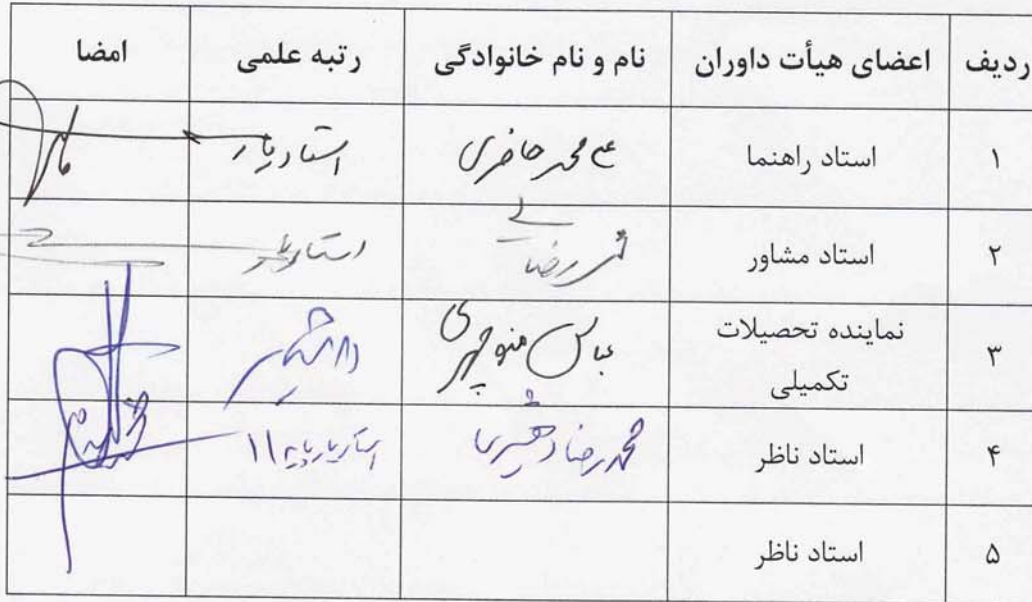 ردیف اعضای هیأت داوران نام و نام خانوادگی رتبه علمی امضا
۱ استاد راهنما علی محمد حاضری استادیار
۲ استاد مشاور استادیار
۳ نماینده تحصیلات تکمیلی عباس منوچهری دانشیار
۴ استاد ناظر محمدرضا دهشیری استادیار پایه ۱۱
۵ استاد ناظر